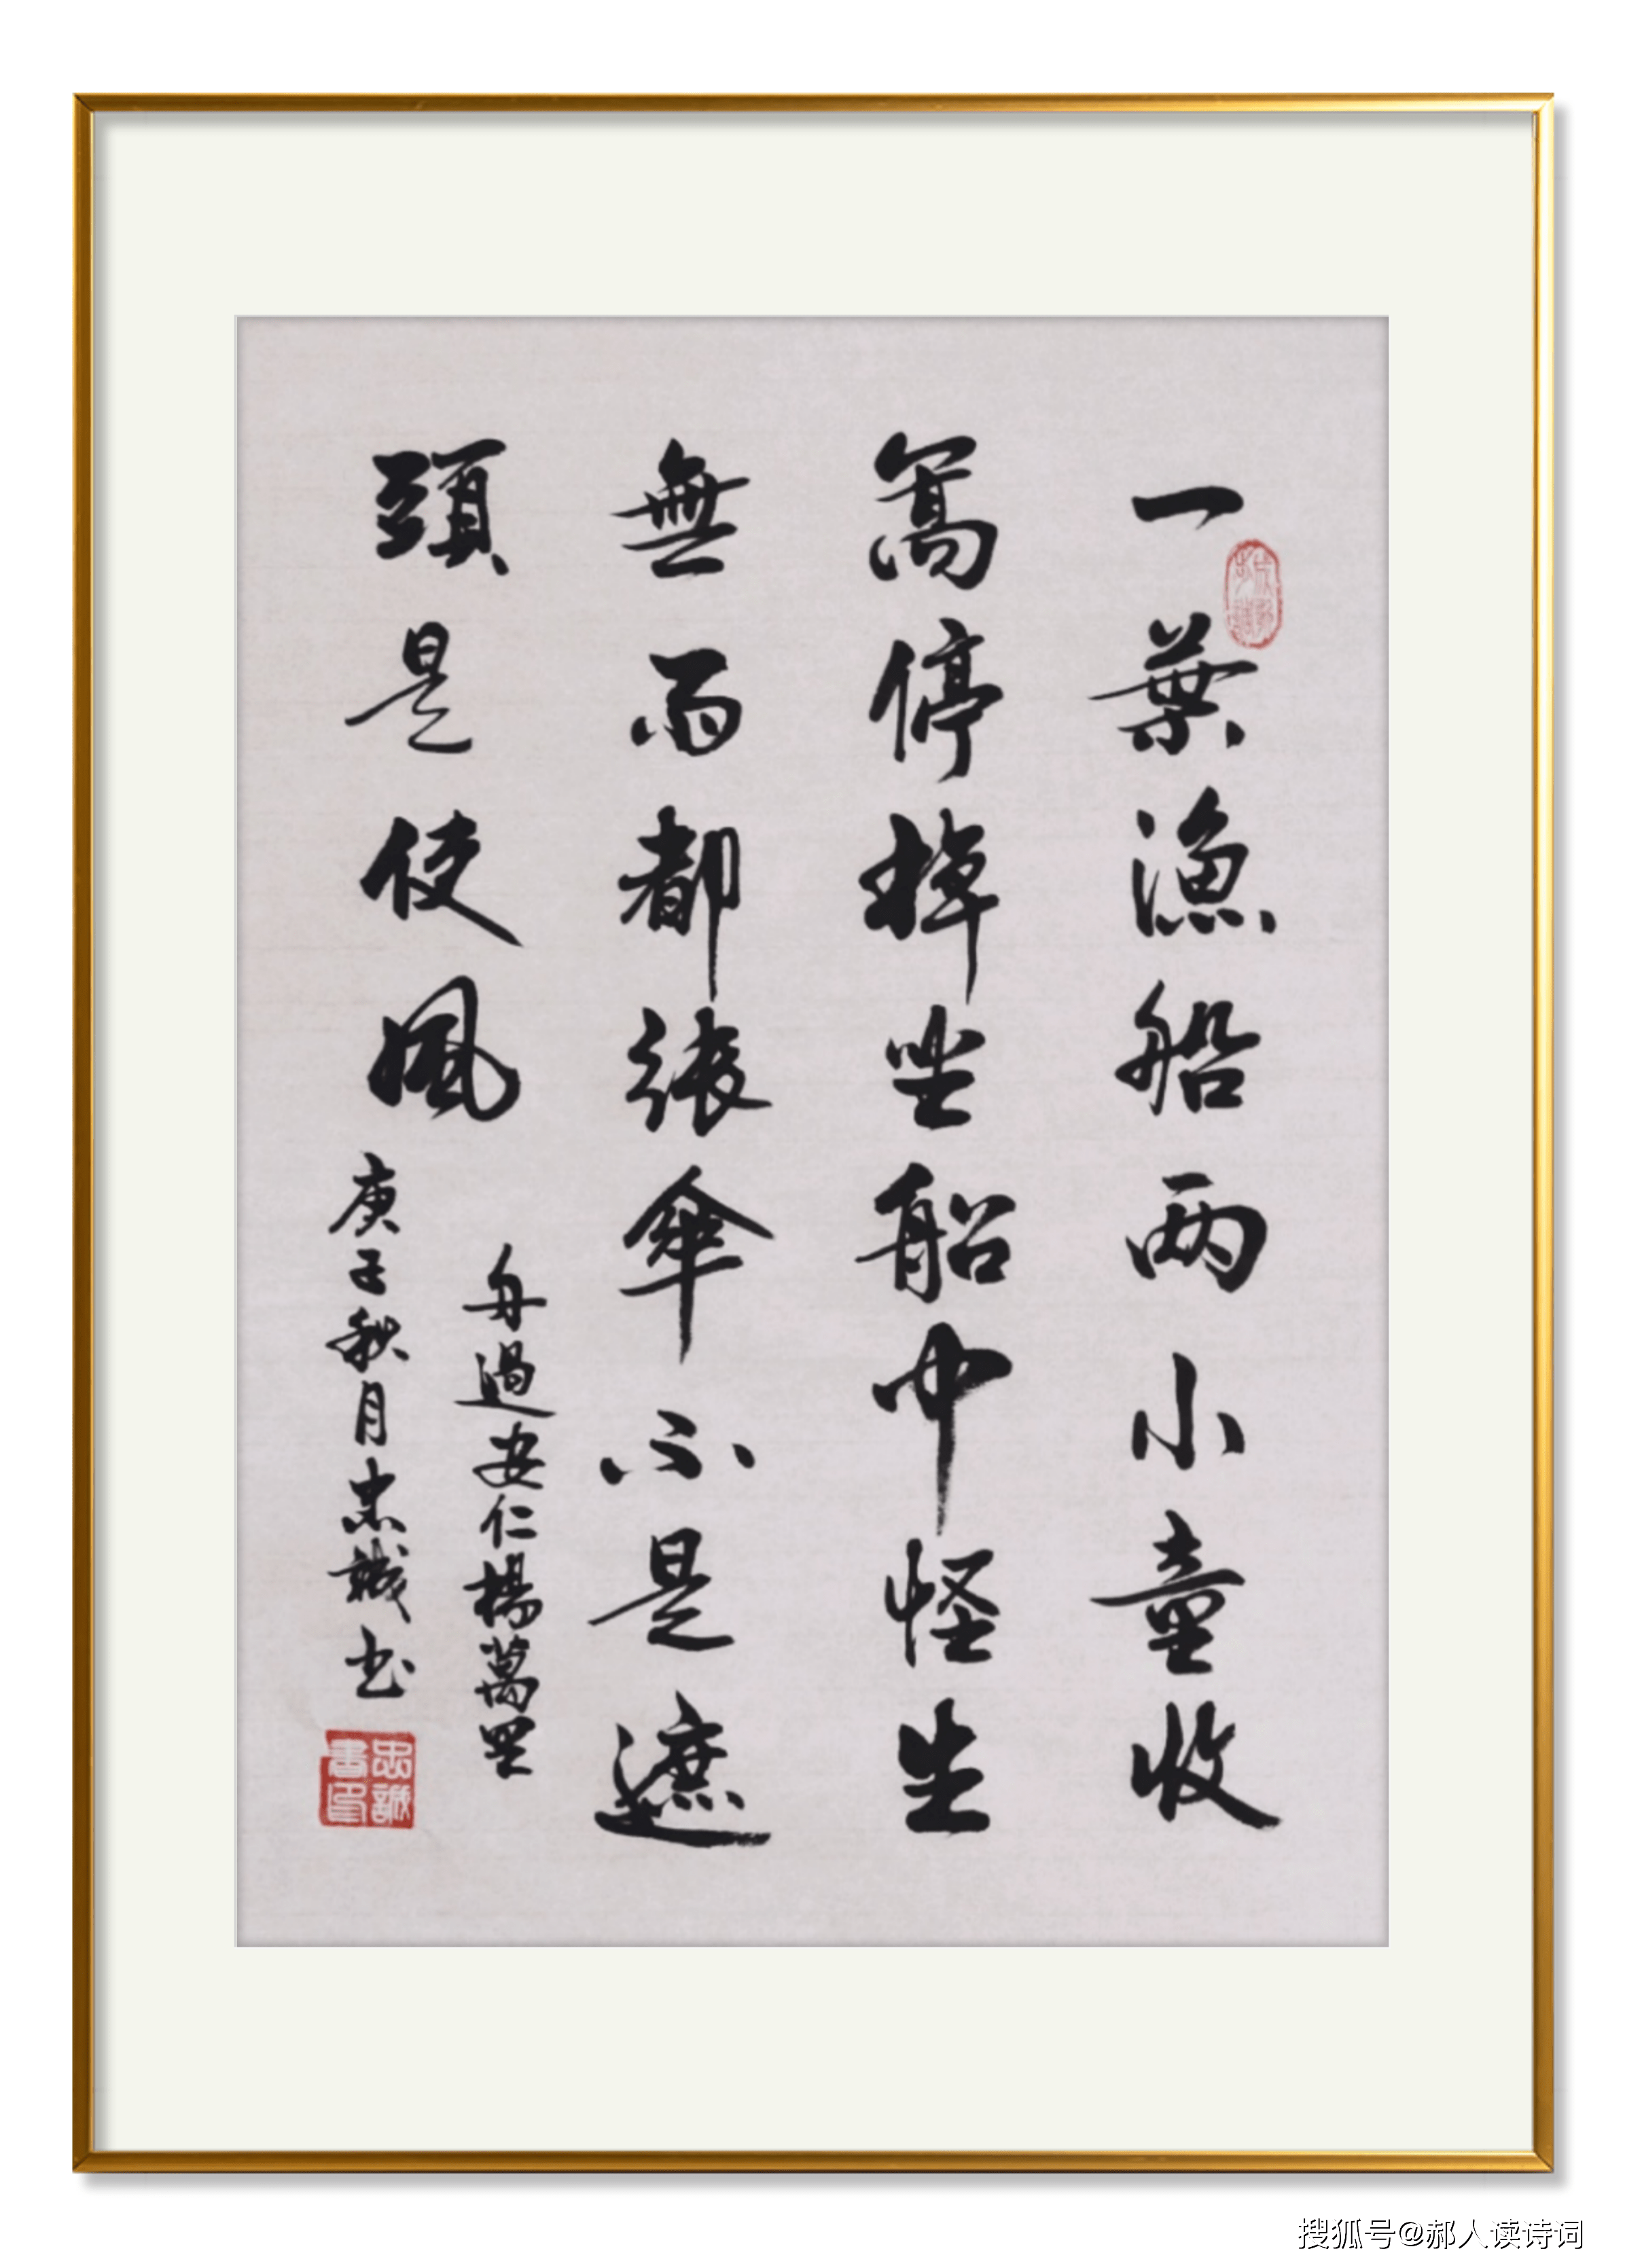 一葉漁船两小童收
篙停棹坐船中怪生
無雨都張傘不是遮
頭是使風
舟過安仁楊萬里
庚子秋月忠誠书
忠誠書印
搜狐号@郝人读诗词